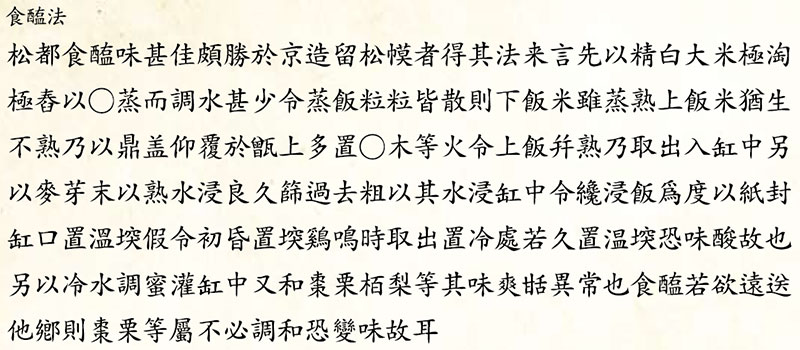 食醢法
松都食醢味甚佳頗勝於京造留松幙者得其法来言先以精白大米極淘
極舂以〇蒸而調水甚少令蒸飯粒粒皆散則下飯米雖蒸熟上飯米猶生
不熟乃以鼎盖仰覆於甑上多置〇木等火令上飯幷熟乃取出入缸中另
以麥芽末以熟水浸良久篩過去粗以其水浸缸中令纔浸飯爲度以紙封
缸口置溫堗假令初昏置堗鷄鳴時取出置冷處若久置温堗恐味酸故也
另以冷水調蜜灌缸中又和棗栗栢梨等其味爽甛異常也食醢若欲遠送
他鄉則棗栗等屬不必調和恐變味故耳